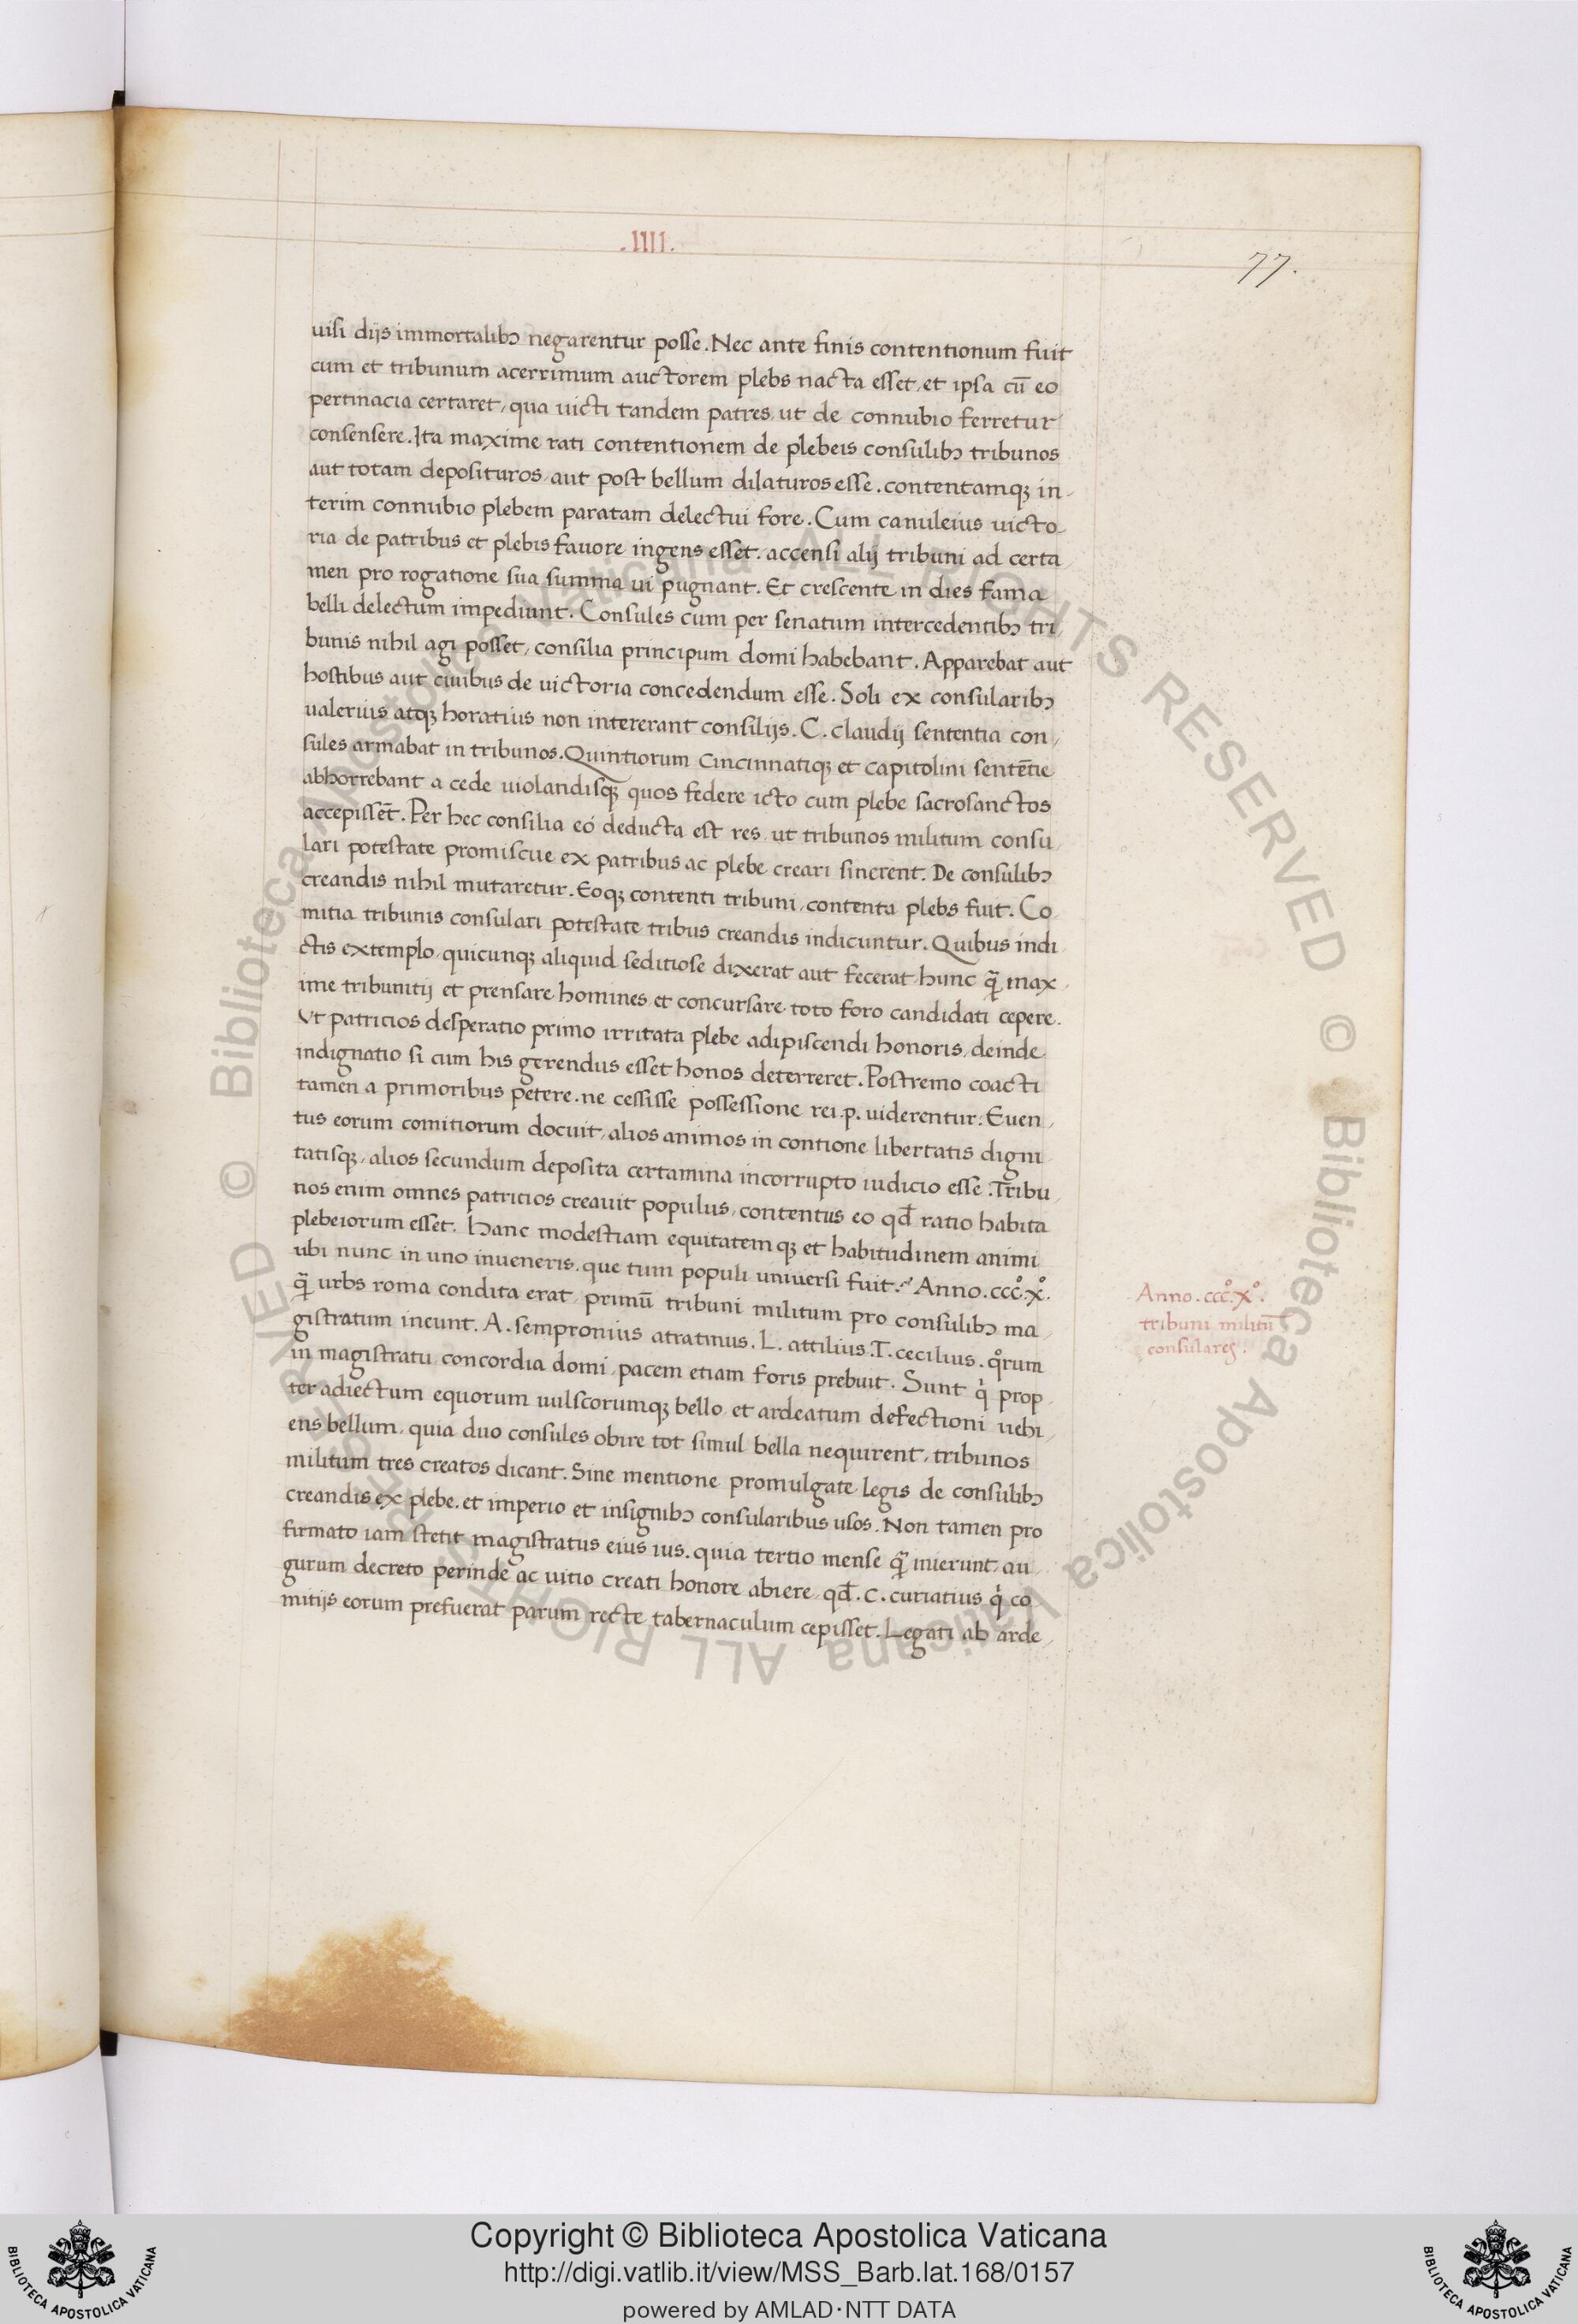 .IIII.
77.
uisi dijs immortalibꝫ negarentur posse. Nec ante finis contentionum fuit
cum et tribunum acerrimum auctorem plebs nacta esset, et ipsa cū eo
pertinacia certaret, qua uicti tandem patres, ut de connubio ferretur
consensere. Ita maxime rati contentionem de plebeis consulibꝫ tribunos
aut totam deposituros, aut post bellum dilaturos esse. contentamqꝫ in-
terim connubio plebem paratam delectui fore. Cum canuleius uicto-
ria de patribus et plebis fauore ingens esset. accensi alij tribuni ad certa
men pro rogatione sua summa ui pugnant. Et crescente in dies fama
belli delectum impediunt. Consules cum per senatum intercedentibꝫ tri,
bunis nihil agi posset, consilia principum domi habebant. Apparebat aut
hostibus aut ciuibus de uictoria concedendum esse. Soli ex consularibꝫ
ualerius atqꝫ horatius non intererant consilijs. C. claudij sententia con,
sules armabat in tribunos. Quintiorum cincinnatiqꝫ et capitolini sentētie
abhorrebant a cede uiolandisqꝫ quos federe icto cum plebe sacrosanctos
accepissēt. Per hec consilia eó deducta est res, ut tribunos militum consu,
lari potestate promiscue ex patribus ac plebe creari sinerent. De consulibꝫ
creandis nihil mutaretur. Eoqꝫ contenti tribuni, contenta plebs fuit. Co
mitia tribunis consulari potestate tribus creandis indicuntur. Quibus indi
ctis extemplo, quicunqꝫ aliquid seditiose dixerat aut fecerat, hunc q̄ max,
ime tribunitij et prensare homines, et concursare toto foro candidati cepere.
Vt patricios desperatio primo irritata plebe adipiscendi honoris, deinde
indignatio si cum his gerendus esset honos deterreret. Postremo coacti
tamen a primoribus petere. ne cessisse possessione rei.p. uiderentur. Euen,
tus eorum comitiorum docuit, alios animos in contione libertatis digni
tatisqꝫ, alios secundum deposita certamina incorrupto iudicio esse. Tribu,
nos enim omnes patricios creauit populus, contentus eo qd̄ ratio habita
plebeiorum esset. Hanc modestiam equitatemqꝫ et habitudinem animi
ubi nunc in uno inueneris. que tum populi uniuersi fuit. Anno.cccͦ.xͦ.
q̄ urbs roma condita erat, primū tribuni militum pro consulibꝫ ma,
gistratum ineunt. A. sempronius atratinus. L. attilius. T. cecilius. qͦrum
in magistratu, concordia domi, pacem etiam foris prebuit. Sunt qⁱ prop,
ter adiectum equorum uulscorumqꝫ bello, et ardeatum defectioni uehi,
ens bellum, quia duo consules obire tot simul bella nequirent, tribunos
militum tres creatos dicant. Sine mentione promulgate legis de consulibꝫ
creandis ex plebe. et imperio et insignibꝫ consularibus usos. Non tamen pro
firmato iam stetit magistratus eius ius. quia tertio mense q̄ inierunt, au,
gurum decreto perinde ac uitio creati honore abiere, qd̄. C. curiatius qⁱ co
mitijs eorum prefuerat parum recte tabernaculum cepisset. Legati ab arde,
Anno.cccͦ.xͦ.
tribuni militū
consulares.
Copyright © Biblioteca Apostolica Vaticana
http://digi.vatlib.it/view/MSS_Barb.lat.168/0157
powered by AMLAD·NTT DATA
BIBLIOTECA APOSTOLICA VATICANA
BIBLIOTECA APOSTOLICA VATICANA
© Biblioteca Apostolica Vaticana ALL RIGHTS RESERVED
© Biblioteca Apostolica Vaticana ALL RIGHTS RESERVED